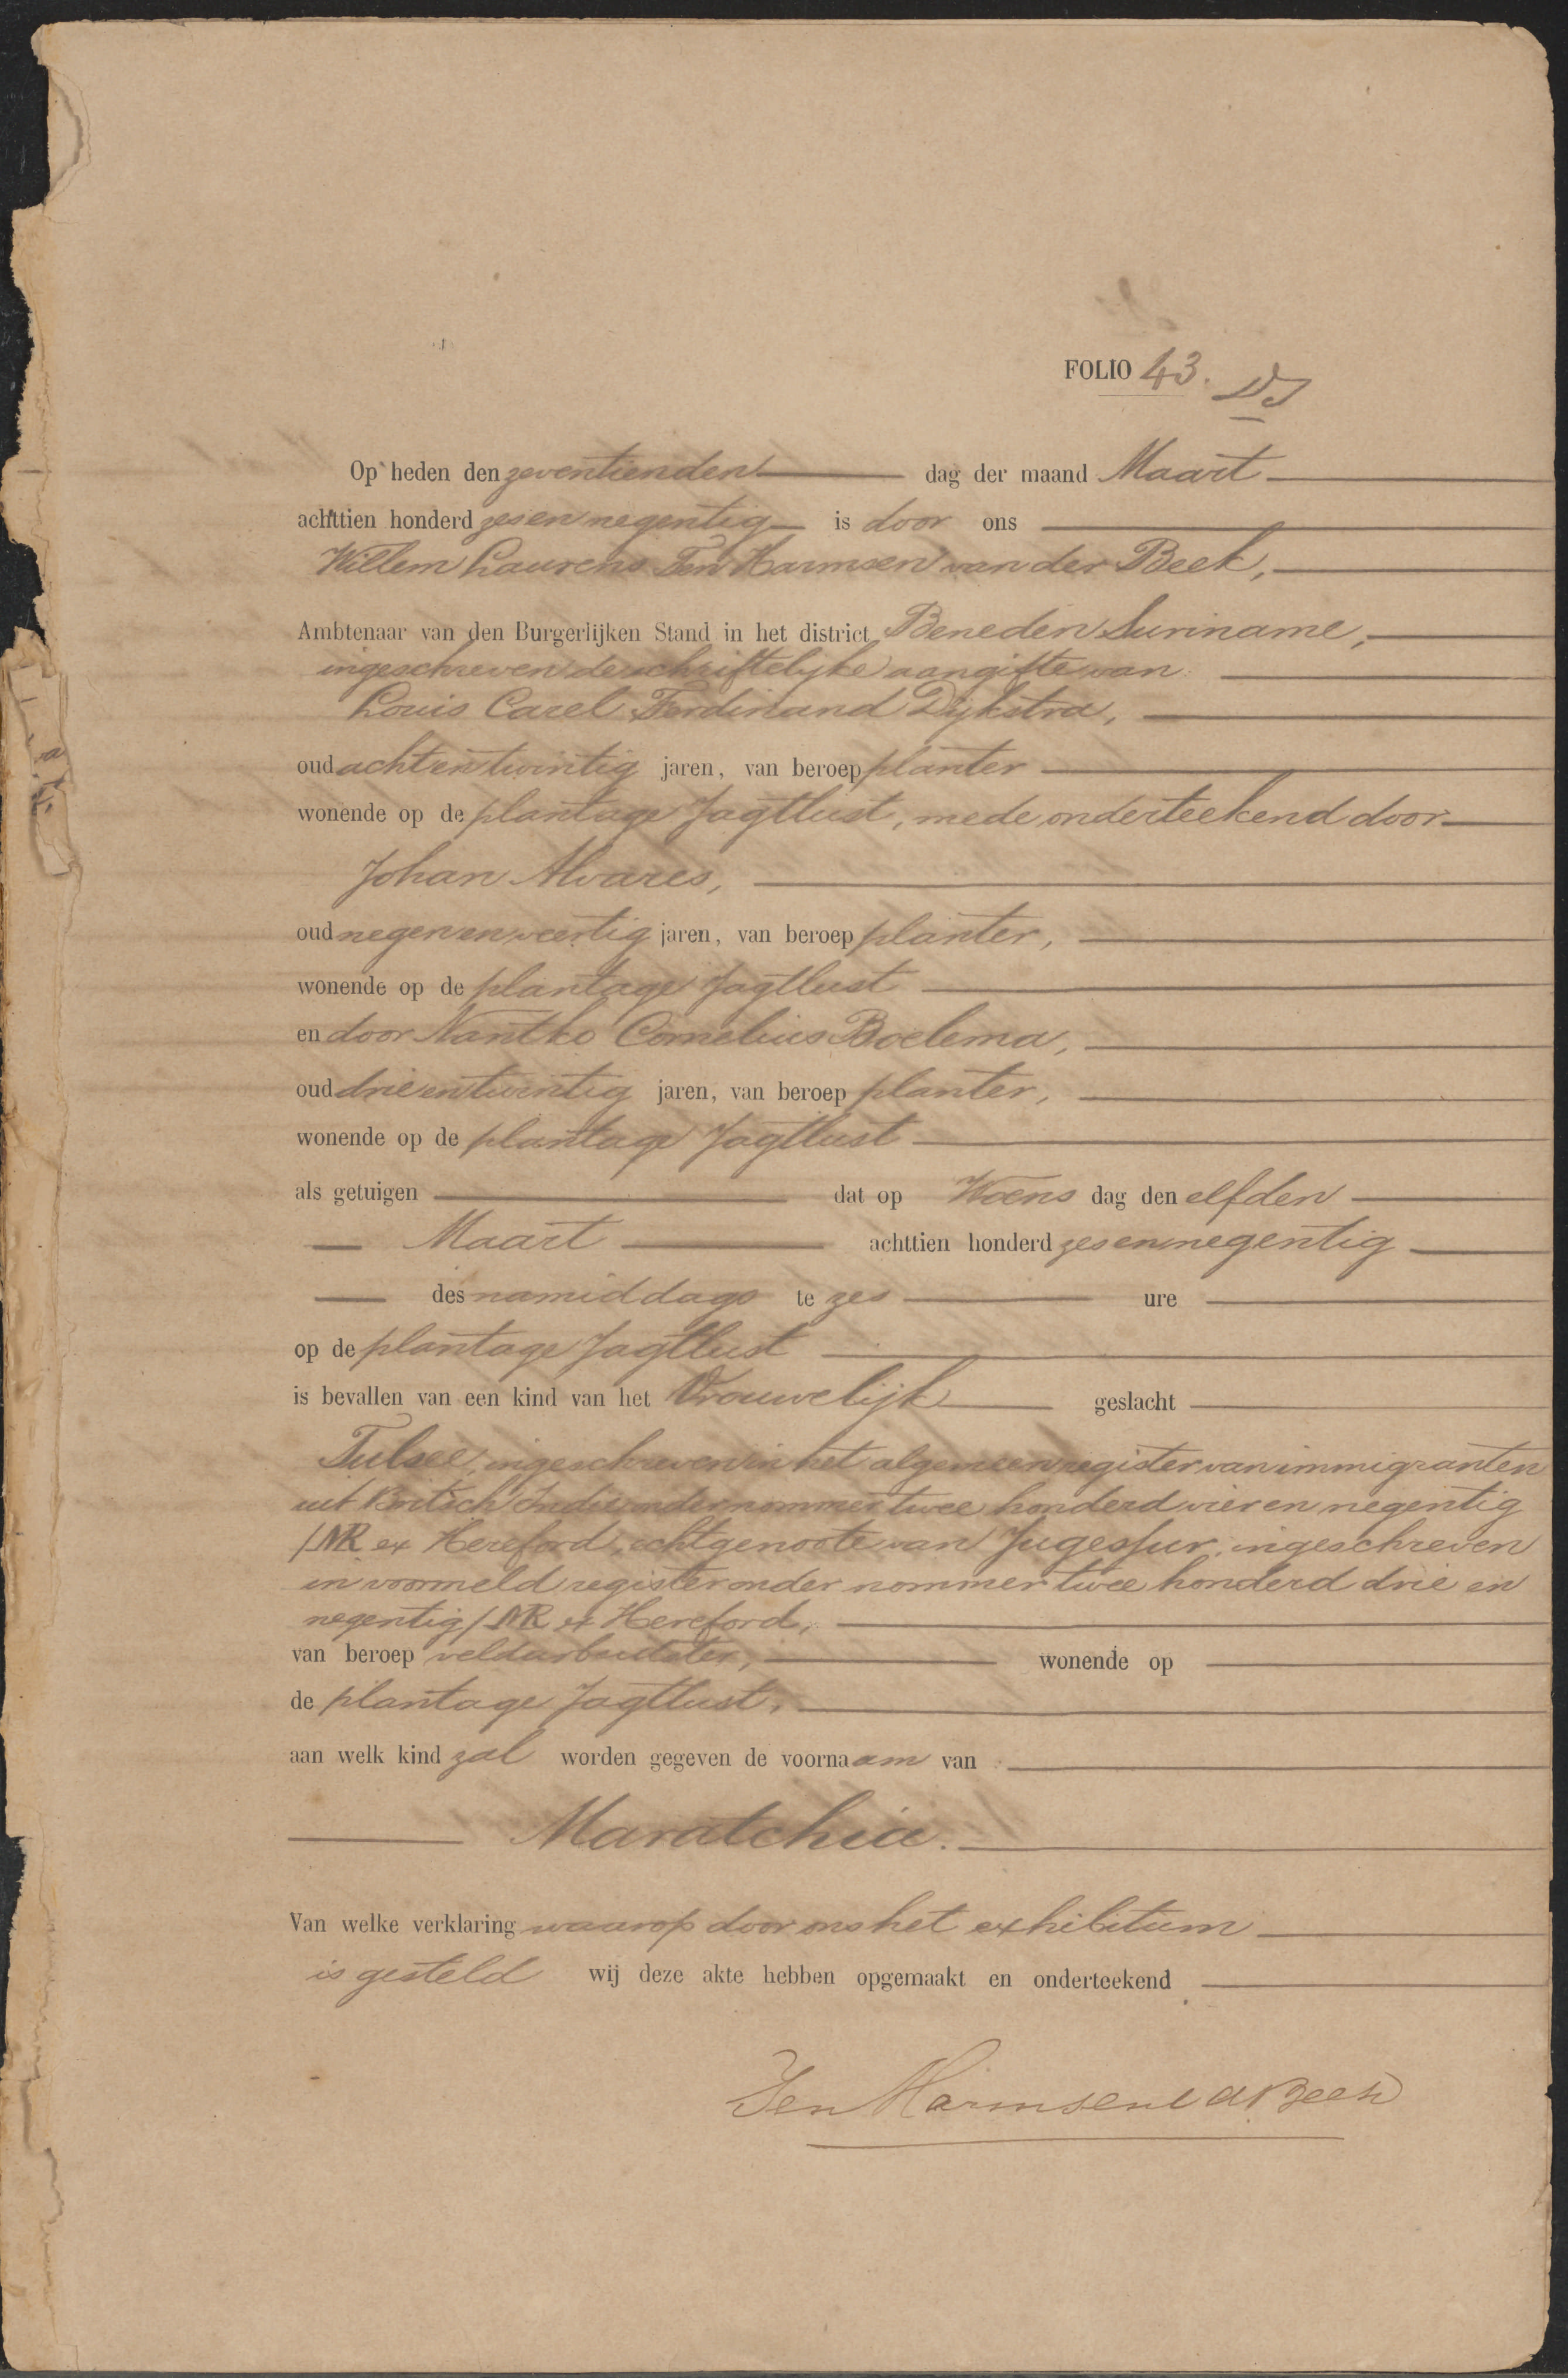 FOLIO 43.
Op heden den zeventienden dag der maand Maart
achttien honderd zesennegentig is door ons
Willem Laurens Ten Harmsen van der Beek,
Ambtenaar van den Burgerlijken Stand in het district Beneden Suriname,
ingeschreven de schriftelijke aangifte van
Louis Carel Ferdinand Dijkstra,
oud achtentwintig jaren, van beroep planter
wonende op de plantage Jagtlust, mede onderteekend door
Johan Alvares,
oud negenenveertig jaren, van beroep planter,
wonende op de plantage Jagtlust
en door Nantko Cornelius Boelema,
oud drieentwintig jaren, van beroep planter,
wonende op de plantage Jagtlust
als getuigen dat op Woens dag den elfden
Maart achttien honderd zesennegentig
des namiddags te zes ure
op de plantage Jagtlust
is bevallen van een kind van het Vrouwelijk geslacht
Tulsee, ingeschreven in het algemeen register van immigranten
uit Britsch Indie onder nommer twee honderd vier en negentig
/NR ex Hereford, echtgenoote van Jugessur, ingeschreven
in voormeld register onder nommer twee honderd drie en
negentig/NR ex Hereford,
van beroep veldarbeidster, wonende op
de plantage Jagtlust,
aan welk kind zal worden gegeven de voornaam van
Maratchia.
Van welke verklaring waarop door ons het exhibitum
is gesteld wij deze akte hebben opgemaakt en onderteekend
Ten Harmsen v d Beek